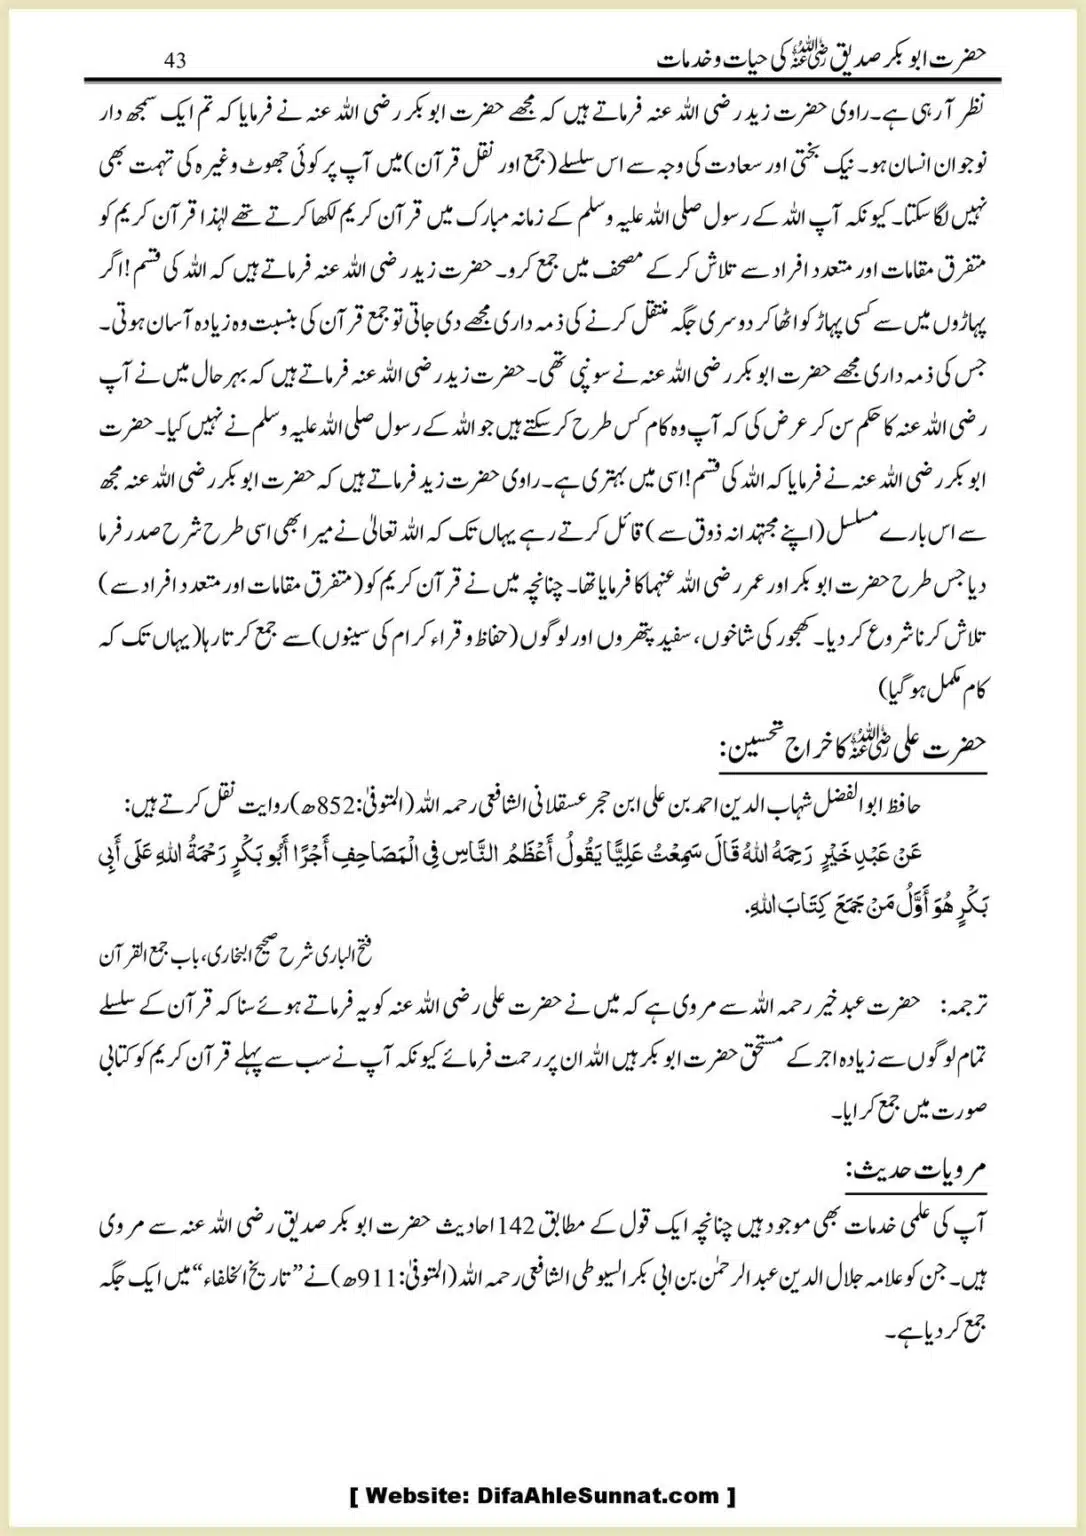 حضرت ابو بکر صدیق رضی اللہ عنہ کی حیات و خدمات
43
نظر آ رہی ہے۔ راوی حضرت زید رضی اللہ عنہ فرماتے ہیں کہ مجھے حضرت ابو بکر رضی اللہ عنہ نے فرمایا کہ تم ایک سمجھ دار
نوجوان انسان ہو۔ نیک بختی اور سعادت کی وجہ سے اس سلسلے (جمع اور نقل قرآن) میں آپ پر کوئی جھوٹ وغیرہ کی تہمت بھی
نہیں لگا سکتا۔ کیونکہ آپ اللہ کے رسول صلی اللہ علیہ وسلم کے زمانہ مبارک میں قرآن کریم لکھا کرتے تھے لہٰذا قرآن کریم کو
متفرق مقامات اور متعدد افراد سے تلاش کر کے مصحف میں جمع کرو۔ حضرت زید رضی اللہ عنہ فرماتے ہیں کہ اللہ کی قسم! اگر
پہاڑوں میں سے کسی پہاڑ کو اٹھا کر دوسری جگہ منتقل کرنے کی ذمہ داری مجھے دی جاتی تو جمع قرآن کی بنسبت وہ زیادہ آسان ہوتی۔
جس کی ذمہ داری مجھے حضرت ابو بکر رضی اللہ عنہ نے سونپی تھی۔ حضرت زید رضی اللہ عنہ فرماتے ہیں کہ بہر حال میں نے آپ
رضی اللہ عنہ کا حکم سن کر عرض کی کہ آپ وہ کام کس طرح کر سکتے ہیں جو اللہ کے رسول صلی اللہ علیہ وسلم نے نہیں کیا۔ حضرت
ابو بکر رضی اللہ عنہ نے فرمایا کہ اللہ کی قسم! اسی میں بہتری ہے۔ راوی حضرت زید فرماتے ہیں کہ حضرت ابو بکر رضی اللہ عنہ مجھ
سے اس بارے مسلسل (اپنے مجتہدانہ ذوق سے) قائل کرتے رہے یہاں تک کہ اللہ تعالیٰ نے میرا بھی اسی طرح شرح صدر فرما
دیا جس طرح حضرت ابو بکر اور عمر رضی اللہ عنہما کا فرمایا تھا۔ چنانچہ میں نے قرآن کریم کو (متفرق مقامات اور متعدد افراد سے)
تلاش کرنا شروع کر دیا۔ کھجور کی شاخوں، سفید پتھروں اور لوگوں (حفاظ و قراء کرام کی سینوں) سے جمع کرتا رہا (یہاں تک کہ
کام مکمل ہو گیا)
حضرت علی رضی اللہ عنہ کا خراج تحسین:
حافظ ابو الفضل شہاب الدین احمد بن علی ابن حجر عسقلانی الشافعی رحمہ اللہ (المتوفیٰ: 852ھ) روایت نقل کرتے ہیں:
عَنْ عَبْدِ خَيْرٍ رَحِمَهُ اللهُ قَالَ سَمِعْتُ عَلِيًّا يَقُولُ أَعْظَمُ النَّاسِ فِي الْمَصَاحِفِ أَجْرًا أَبُو بَكْرٍ رَحْمَةُ اللهِ عَلَى أَبِي
بَكْرٍ هُوَ أَوَّلُ مَنْ جَمَعَ كِتَابَ اللهِ.
فتح الباری شرح صحیح البخاری، باب جمع القرآن
ترجمہ: حضرت عبد خیر رحمہ اللہ سے مروی ہے کہ میں نے حضرت علی رضی اللہ عنہ کو یہ فرماتے ہوئے سنا کہ قرآن کے سلسلے
تمام لوگوں سے زیادہ اجر کے مستحق حضرت ابو بکر ہیں اللہ ان پر رحمت فرمائے کیونکہ آپ نے سب سے پہلے قرآن کریم کو کتابی
صورت میں جمع کرایا۔
مرویات حدیث:
آپ کی علمی خدمات بھی موجود ہیں چنانچہ ایک قول کے مطابق 142 احادیث حضرت ابو بکر صدیق رضی اللہ عنہ سے مروی
ہیں۔ جن کو علامہ جلال الدین عبد الرحمٰن بن ابی بکر السیوطی الشافعی رحمہ اللہ (المتوفیٰ: 911ھ) نے ”تاریخ الخلفاء“ میں ایک جگہ
جمع کر دیا ہے۔
[ Website: DifaAhleSunnat.com ]